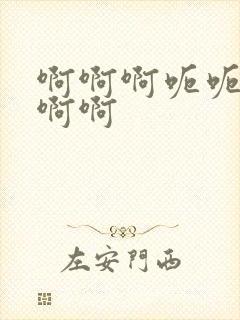 啊啊啊呃呃
啊啊
左安門西